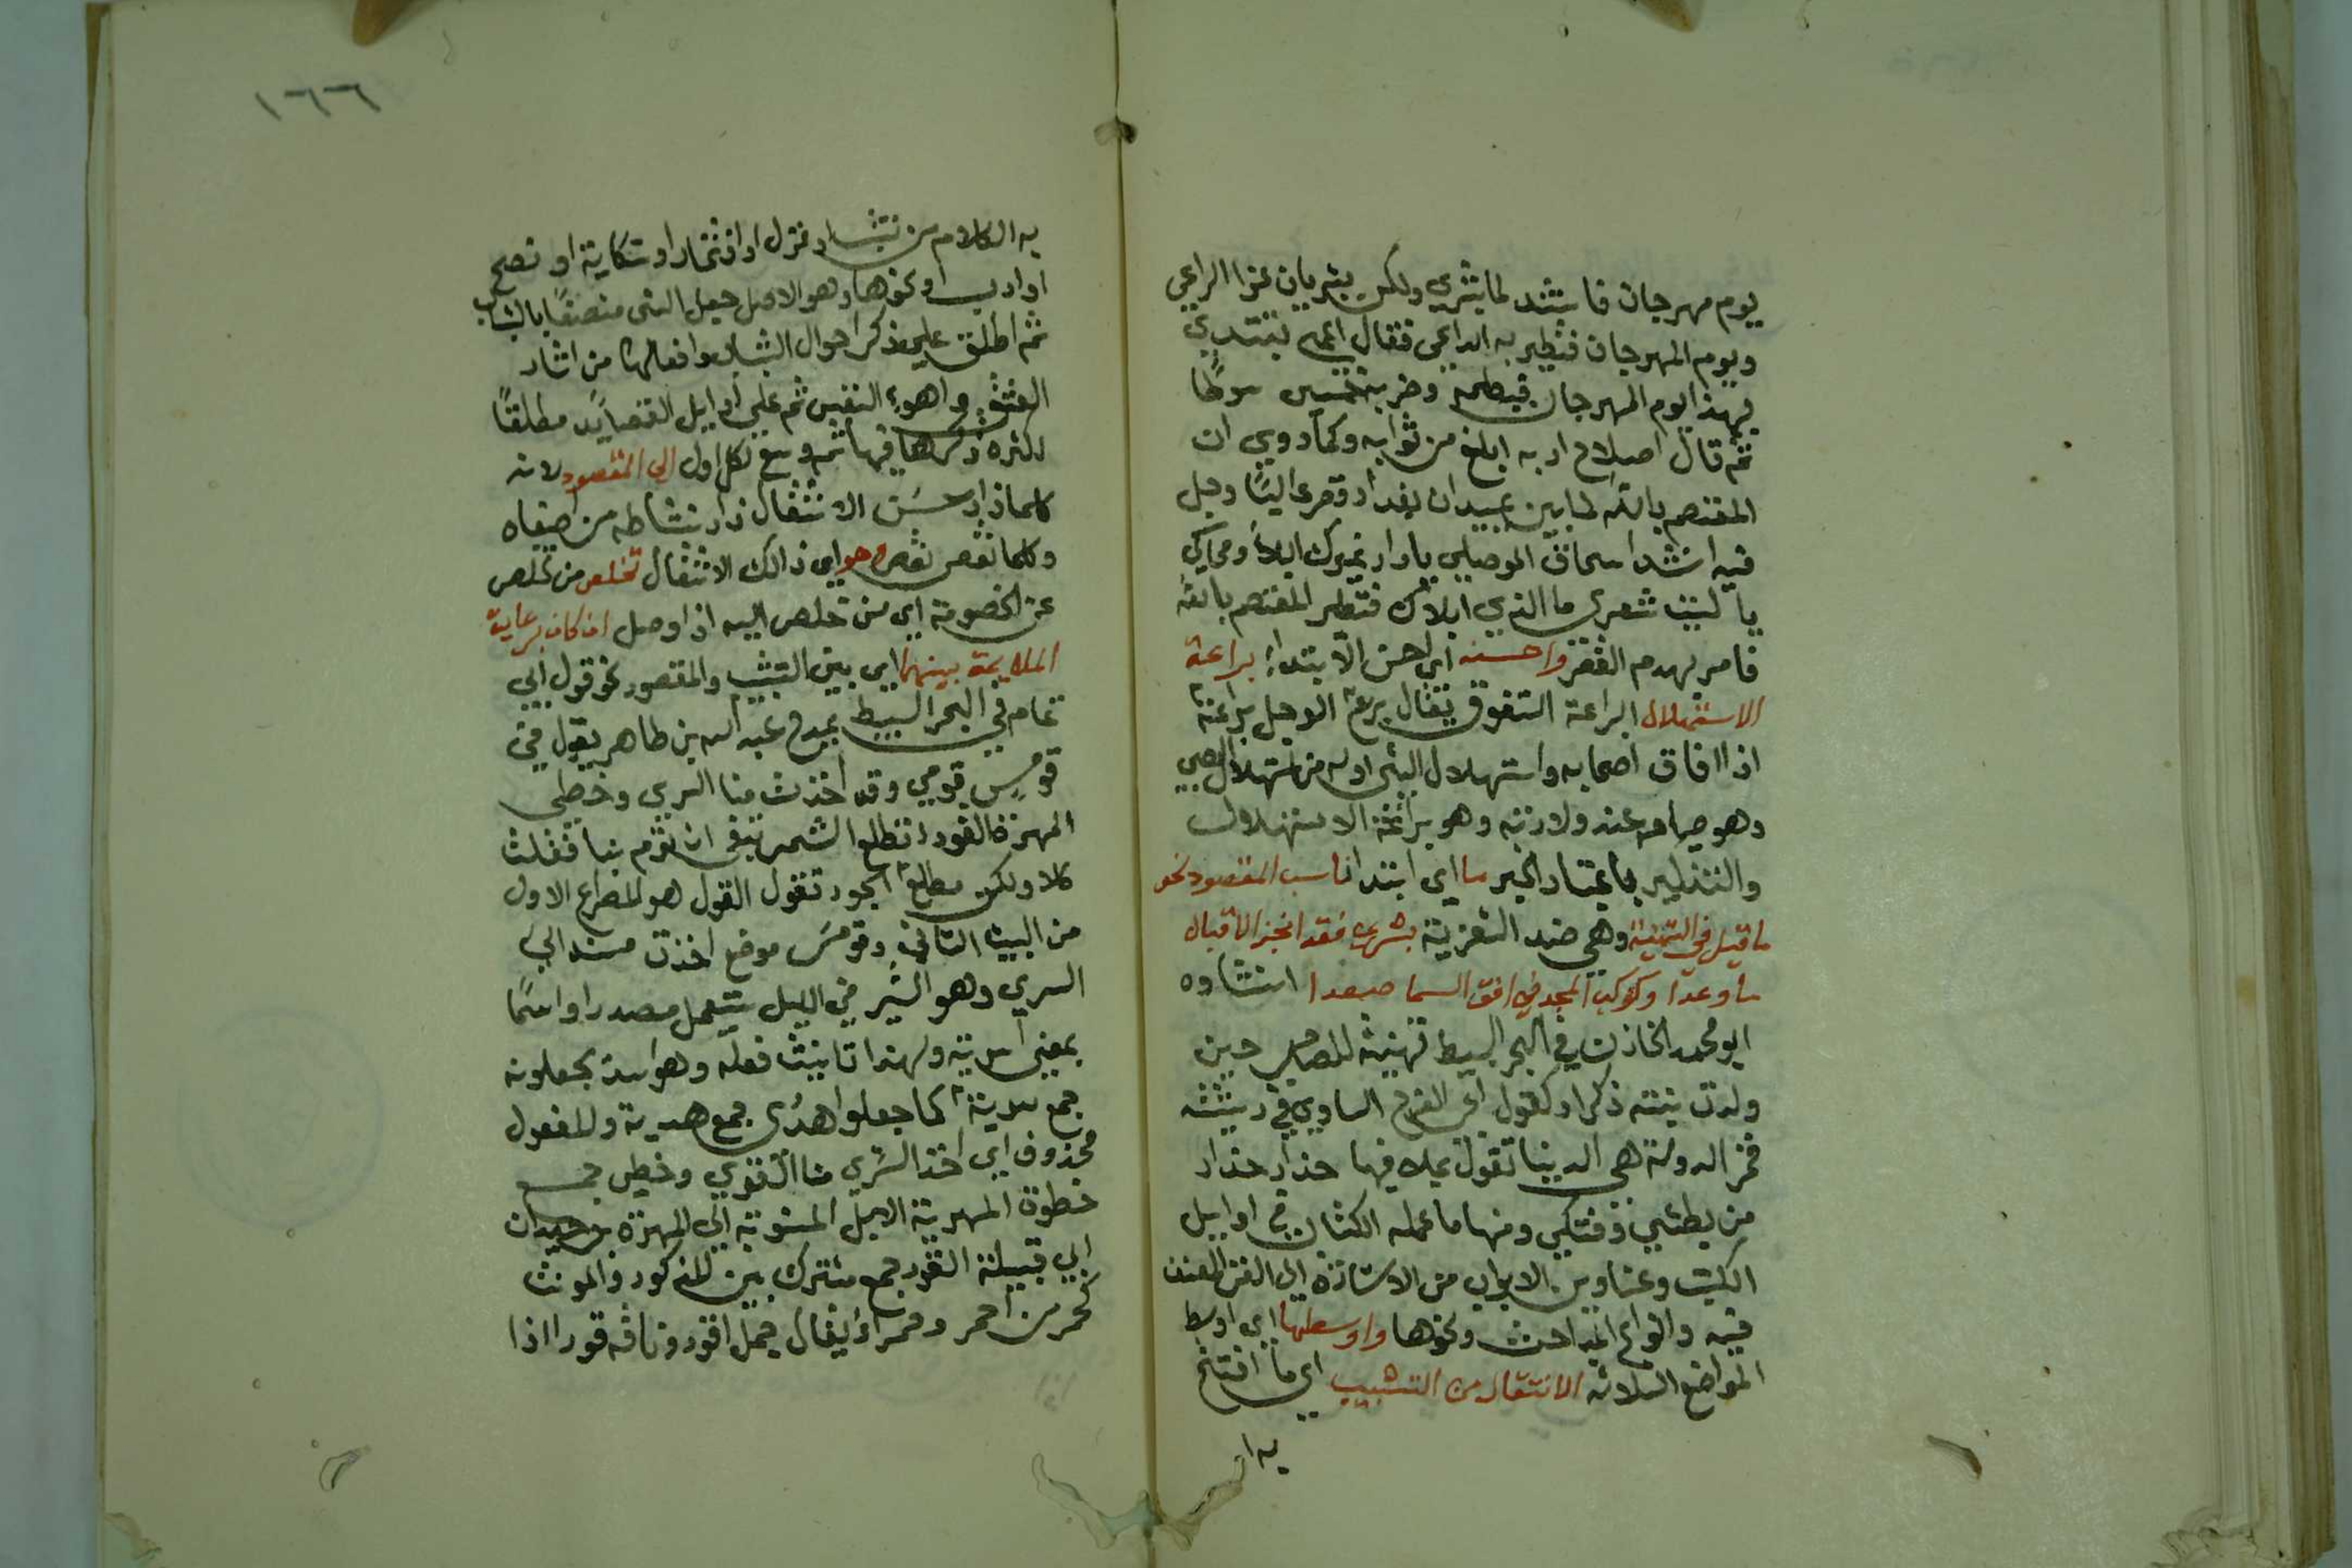 يوم مهرجان فانشد لا بشرى ولكن بشريان غرا الراعي
ويوم المهرجان فتطير به الداعي فقال اعمى يبتدي
بهذا يوم المهرجان فبطحه وضربه خمسين سوطا
ثم قال اصلاح ادبه ابلغ من ثوابه وكما روي ان
المعتصم بالله لما بين بميدان بغداد قصرا عاليا وجل
فيه انشد اسحاق الموصلي يا دار غيرك البلا ومحاكي
يا ليت شعري ما الذي ابلاك فتطير المعتصم بالله
فامر بهدم القصر واحسنه اي احسن الابتداء براعة
الاستهلال البراعة التفوق يقال برع الرجل براعة
اذا افاق اصحابه واستهلال الشى اوله من استهلال الصبي
وهو صياحه عند ولادته وهو براعة الاستهلال
والتذكير باعتبار الخبر ما اي ابتدا ناسب المقصود نحو
ما قيل في التهنية وهي ضد التعزية بشرى فقد انجز الاقبال
ما وعدا وكوكب المجد في افق السما صعدا انشاده
ابو محمد الخازن في البحر البسيط تهنية للصاحب حين
ولدت بنته ذكرا وكقول ابى الفرج الساوي في مرثية
فخر الدولة هى الدنيا تقول بملا فيها حذار حذار
من بطشي وفتكي ومنها ما عمله الكتاب في اوايل
الكتب وعناوين الابواب من الاشارة الى الفن المصنف
فيه وانواع المباحث ونحوها واوسطها اي اوسط
المواضع الثلاثه الانتقال من التشبيب اي ما افتتح
به ا
١٦٦
به الكلام من تشبيب او غزل او افتخار او شكاية او نصح
او ادب او نحوها وهو الاصل جعل الشى متصفا بالشباب
ثم اطلق على ذكر احوال الشباب وافعالها من اثار
العشق واهوء النفس ثم على اوايل القصايد مطلقا
لكثرة ذكرها فيها ثم وسع لكل اول الى المقصود لانه
كلما زاد حسن الانتقال زاد نشاطه من اصغاه
وكلما نقص نقص وهو اي ذالك الانتقال تخلص من تخلص
عن الخصومة اي من تخلص اليه اذا وصل ان كان برعاية
الملايمة بينهما اي بين التشبيب والمقصود نحو قول ابي
تمام في البحر البسيط بمدح عبد الله بن طاهر يقول في
قومس قومي وقد اخذت منا السرى وخطى
المهرة القود اتطلع الشمس تبغى ان تؤم بنا فقلت
كلا ولكن مطلع الجود تقول القول هو المصراع الاول
من البيت الثاني وقومس موضع اخذت مسند الى
السرى وهو السير في الليل يستعمل مصدرا واسما
بمعنى اسرية ولهذا تانيث فعله وهو اسد يجعلونه
جمع سرية كما جعلوا هدى جمع هدية والمفعول
محذوف اي اخذ السرى منا القوى وخطى جمع
خطوة المهرية الابل المنسوبة الى المهرة بن حيدان
ابي قبيلة القود جمع مشترك بين المذكور والمونث
كحمر من احمر وحمراء يقال جمل اقود وناقه قودا اذا